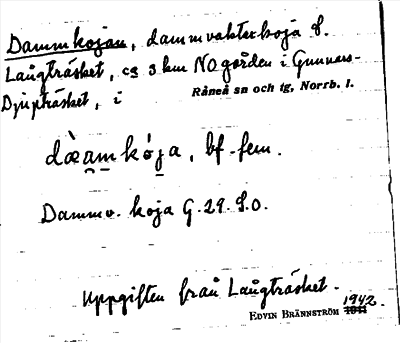 Dammkojan, dammvakterkoja S.
Långträsket, ca 3 km NO gården i Gunnars-
Djupträsket, i Råneå sn och tg, Norrb. l.
dæ̀a̯m kója, bf. fem.
Dammv. koja G. 29. S.O.
Uppgiften från Långträsket.
EDVIN BRÄNNSTRÖM 1942.